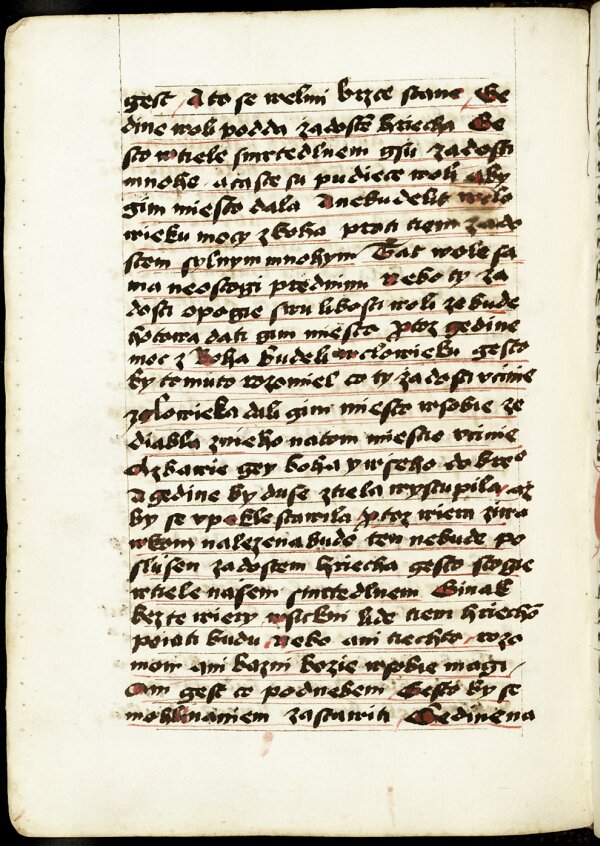 gest / A to se welmi brzce stane / Ge
dine woli podda zadostem hriecha Ge
sto w tiele smrtedlnem gsu zadosti
mnohe a czasto su pudiece woli aby
gim miesto dala A nebudelit w czlo
wieku mocy z boha proti tiem zado
stem sylnym mnohym Tak wole sa
ma neostogi przed nimi Nebo ty za
dosti opogie swu libosti woli ze bude
hotowa dati gim miesto Protoz gedine
moc z Boha budeli w czlowieku gesto
by tomuto rozomiel co ty zadosti vczinie
z czlowieka dali gim miesto w sobie ze
diabla z nieho na tom miestie vczinie
A zbawie gey boha y wseho dobreho
A gedine by duse z tiela wystupila / az
by se v pekle stawila / Protoz wiera ziwa
w kom nalezena bude ten nebude po
slusen zadostem hriecha gesto stogie
w tiele nasem smrtedlnem Ginak
bez te wiery wsickni lide tiem hriechom
poiati budu / Nebo ani tiechto rozo
mow ani bazni bozie w sobie magi /
Ani gest co pod nebem Gesto by se
mohlo namiem zastawiti / Gedine na